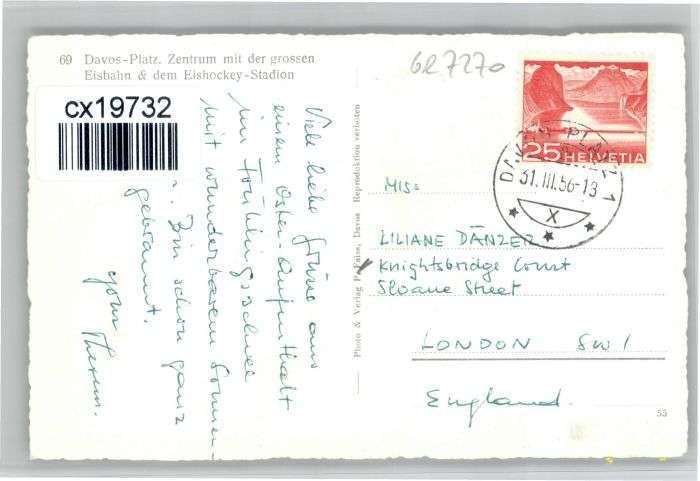 69 Davos-Platz. Zentrum mit der grossen
Eisbahn & dem Eishockey-Stadion
cx19732
Viele liebe Grüsse aus
einem Oster-Aufenthalt
im Frühlingsschnee
mit wunderbarem Sonnen-
Bin schon ganz
gebrannt.
your
Photo & Verlag P. Faiss, Davos Reproduktion verboten
GR 7270
25 HELVETIA
DAVOS PLATZ 1
31.III.56-13
X
MISS
LILIANE DÄNZER
Knightsbridge Court
Sloane Street
LONDON SW1
England.
53